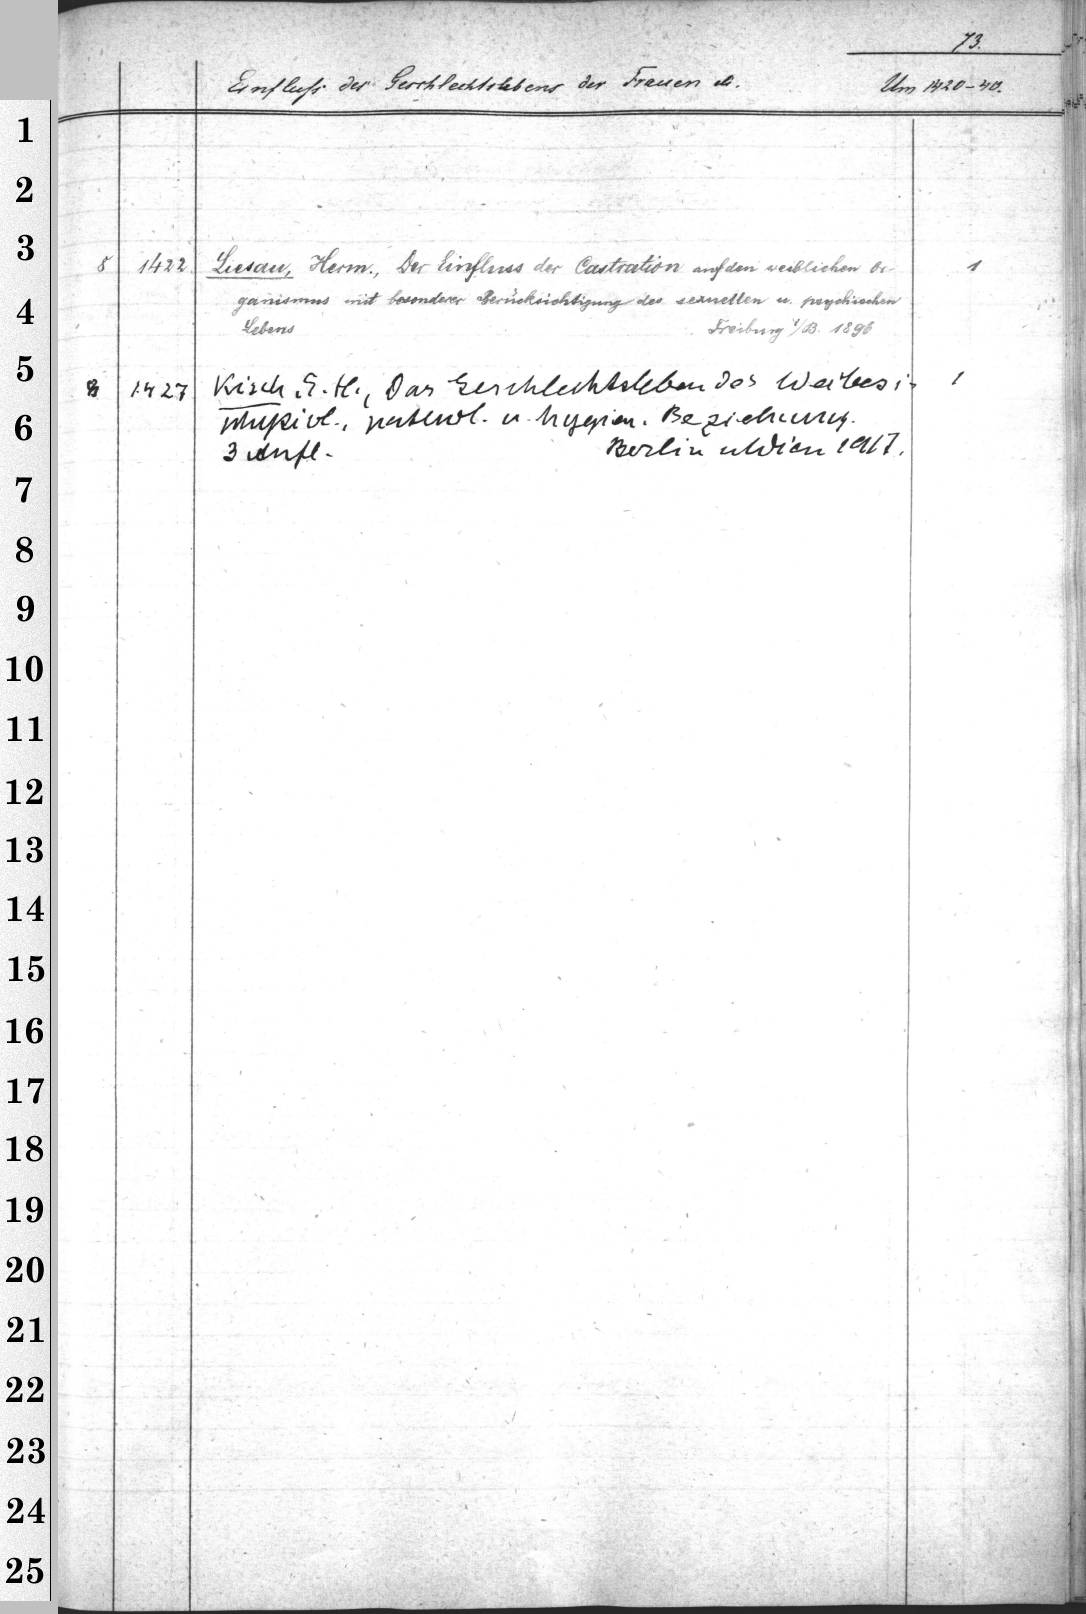 73.
Einfluß des Geschlechtslebens der Frauen etc. Um 1420-40.
1
2
3
8 1422 Liesau, Herm., Der Einfluss der Castration auf den weiblichen Or- 1
ganismus mit besonderer Berücksichtigung des sexuellen u. psychischen
4
Lebens Freiburg i/B. 1896
5
8 1427 Kisch, E. H., Das Geschlechtsleben des Weibes i. 1
6
physiol., pathol. u. hygien. Beziehung.
3 Aufl. Berlin u Wien 1917.
7
8
9
10
11
12
13
14
15
16
17
18
19
20
21
22
23
24
25